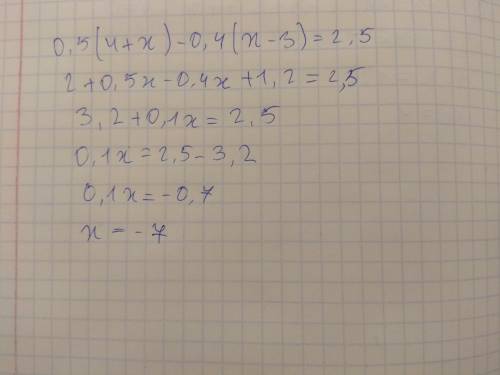 0,5(4+x)-0,4(x-3)=2,5
2+0,5x-0,4x+1,2=2,5
3,2+0,1x=2,5
0,1x=2,5-3,2
0,1x=-0,7
x=-7